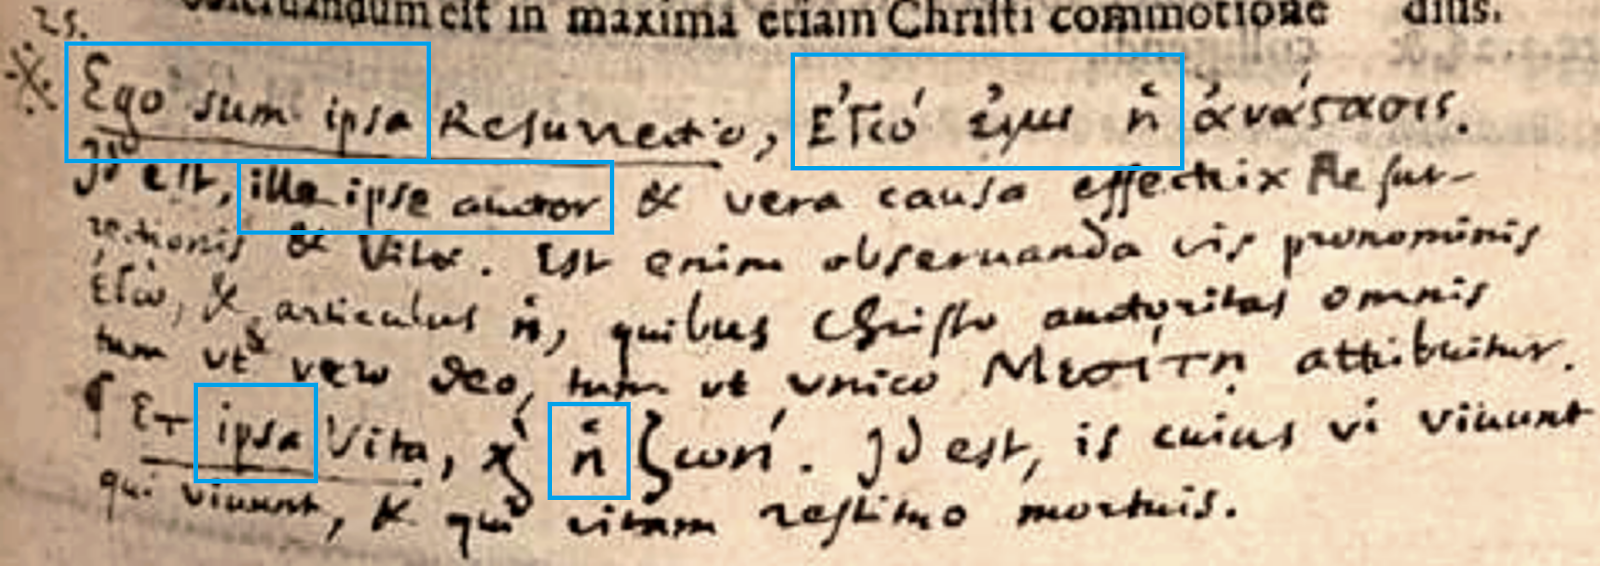 obseruandum est in maxima etiam Christi commotione dius.
25.
Ego sum ipsa Resurrectio, Ἐγώ εἰμι ἡ ἀνάστασις.
Id est, ille ipse auctor & vera causa effectrix Resur-
rectionis & Vitæ. Est enim obseruanda vis pronominis
Ἐγώ, & articulus ἡ, quibus Christo auctoritas omnis
tum vt vero Deo, tum vt vnico Μεσίτῃ attribuitur.
¶ Et ipsa Vita, ϗ ἡ ζωή. Id est, is cuius vi viuunt
qui viuunt, & qui vitam restituo mortuis.